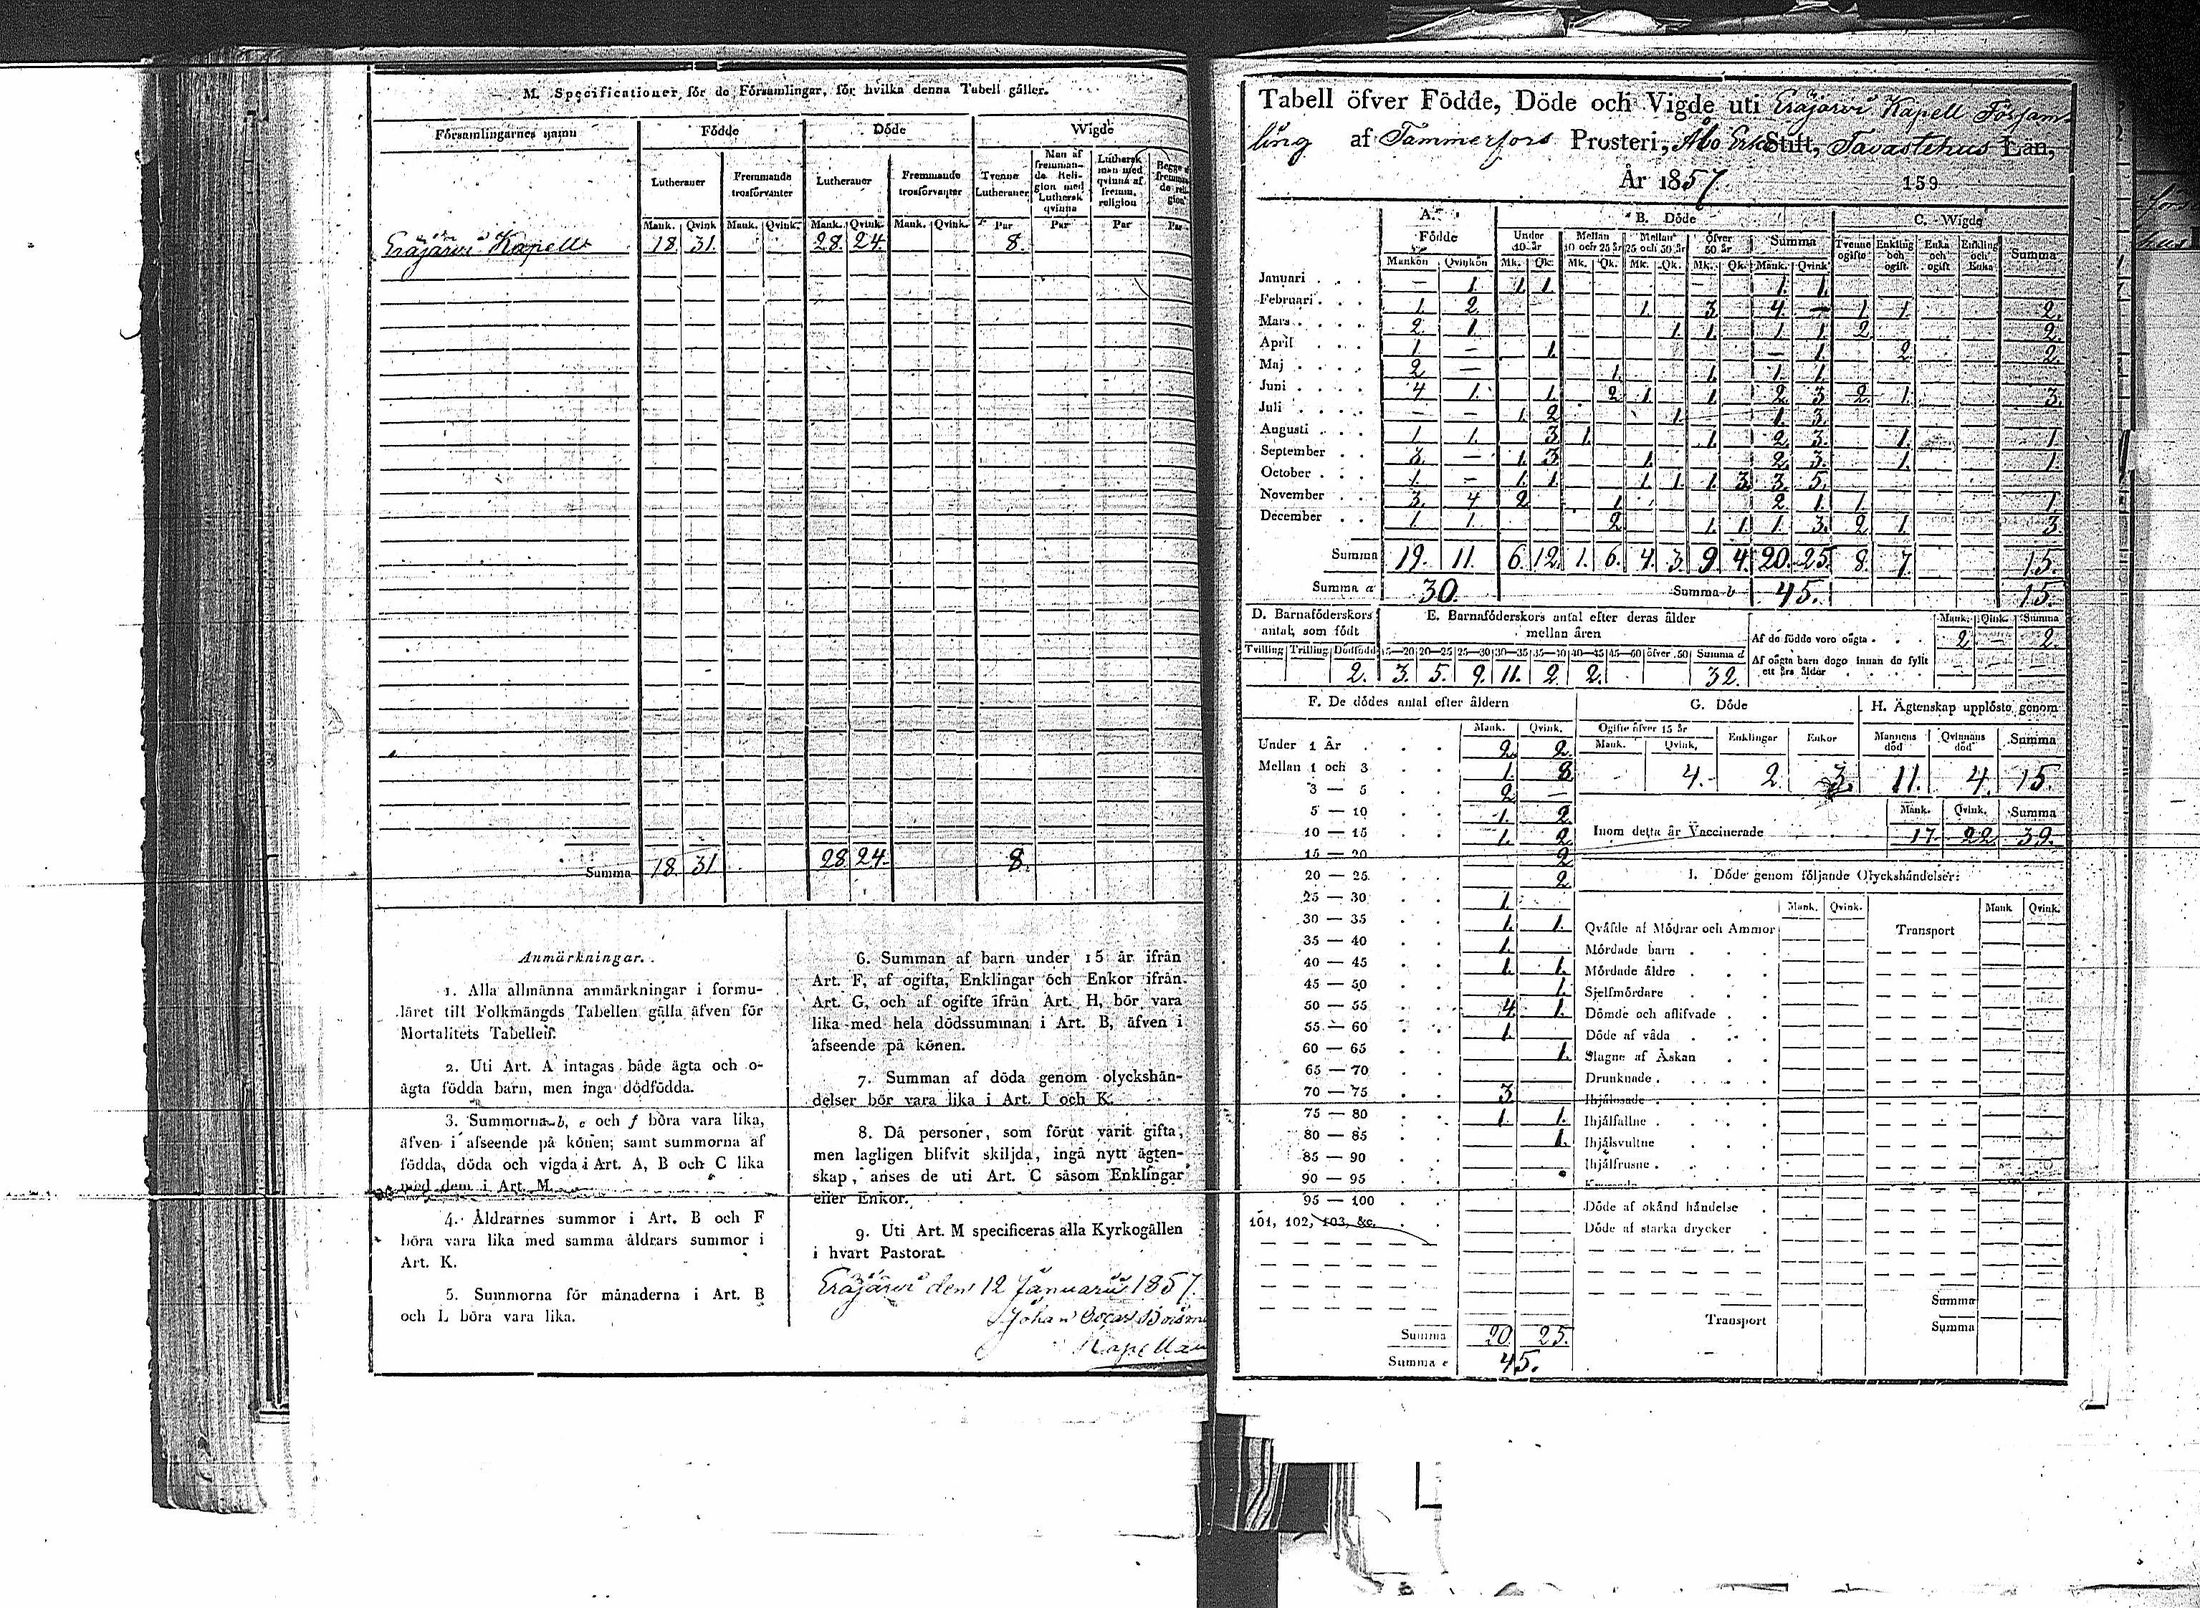 M. Specificationer för de Församlingar, för hvilka denna Tabell gäller.
Församlingarnes namn Födde Döde Wigde
Lutheraner Fremmande trosförvanter Lutheraner Fremmande trosförvanter Tvenne Lutheraner Man af fremmande Religion med Luthersk qvinna Luthersk man med qvinna af fremm. religion Begge af fremmande religion
Mank. Qvink Mank. Qvink. Mank. Qvink. Mank. Qvink. Par Par Par Par
Eräjärvi Kapell 18. 31. 28. 24. 8.
Summa 18. 31. 28. 24. 8.
Anmärkningar.
1. Alla allmänna anmärkningar i formu-
läret till Folkmängds Tabellen gälla äfven för
Mortalitets Tabellen.
2. Uti Art. A intagas både ägta och o-
ägta födda barn, men inga dödfödda.
3. Summorna b, e och f böra vara lika,
äfven i afseende på könen; samt summorna af
födda, döda och vigda i Art. A, B och C lika
med dem i Art. M.
4. Åldrarnes summor i Art. B och F
böra vara lika med samma åldrars summor i
Art. K.
5. Summorna för månaderna i Art. B
och L böra vara lika.
6. Summan af barn under 15 år ifrån
Art. F, af ogifta, Enklingar och Enkor ifrån
Art. G, och af ogifte ifrån Art. H, bör vara
lika med hela dödssumman i Art. B, äfven i
afseende på könen.
7. Summan af döda genom olyckshän-
delser bör vara lika i Art. I och K.
8. Då personer, som förut varit gifta,
men lagligen blifvit skiljda, ingå nytt ägten-
skap, anses de uti Art. C såsom Enklingar
eller Enkor.
9. Uti Art. M specificeras alla Kyrkogällen
i hvart Pastorat.
Eräjärvi den 12 Januarii 1857.
Johan Oscar
Kapellan
Tabell öfver Födde, Döde och Vigde uti Eräjärvi Kapell Församling
af Tammerfors Prosteri, Åbo Erke Stift, Tavastehus Län,
År 1857 159
A. Födde B. Döde C. Wigde
Under 10 år Mellan 10 och 25 år Mellan 25 och 50 år Öfver 50 år Summa Tvenne ogifte Enkling och ogift Enka och ogift Enkling och Enka Summa
Mankön Qvinkön Mk. Qk. Mk. Qk. Mk. Qk. Mk. Qk. Mank. Qvink.
Januari — 1. 1. 1. 1. 1.
Februari 1. 2. 1. 3. 4. — 1. 1. 2.
Mars 2. 1. 1. 1. 1. 1. 2. 2.
April 1. — 1. — 1. 2. 2.
Maj 2. — 1. 1. 1. 1.
Juni 4. 1. 1. 2. 1. 1. 2. 3. 2. 1. 3.
Juli — — 1. 2. 1. 1. 3.
Augusti 1. 1. 3. 1. 1. 2. 3. 1. 1.
September 3. — 1. 3. 1. 2. 3. 1. 1.
October 1. — 1. 1. 1. 1. 1. 3. 3. 5.
November 3. 4. 2. 1. 2. 1. 1. 1.
December 1. 1. 2. 1. 1. 1. 3. 2. 1. 3.
Summa 19. 11. 6. 12. 1. 6. 4. 3. 9. 4. 20. 25. 8. 7. 15.
Summa a 30. Summa b 45. 15.
D. Barnaföderskors antal, som födt
Tvilling Trilling Dödfödd
2.
E. Barnaföderskors antal efter deras ålder mellan åren
15—20 20—25 25—30 30—35 35—40 40—45 45—50 öfver 50 Summa d
3. 5. 9. 11. 2. 2. 32.
Mank. Qink. Summa
Af de födde voro oägta 2. 2.
Af oägta barn dogo innan de fyllt
ett års ålder — — —
F. De dödes antal efter åldern
Mank. Qvink.
Under 1 År 2. 2.
Mellan 1 och 3 1. 8.
3 — 5 2. —
5 — 10 1. 2.
10 — 15 1. 2.
15 — 20 2.
20 — 25 2.
25 — 30 1.
30 — 35 1. 1.
35 — 40 1.
40 — 45 1. 1.
45 — 50 1.
50 — 55 4. 1.
55 — 60 1.
60 — 65 1.
65 — 70
70 — 75 3.
75 — 80 1. 1.
80 — 85 1.
85 — 90
90 — 95
95 — 100
101, 102, 103, &c.
Summa 20. 25.
Summa e 45.
G. Döde
Ogifte öfver 15 år Enklingar Enkor
Mank. Qvink.
- 4. 2. 3.
H. Ägtenskap upplöste genom
Mannens död Qvinnans död Summa
11. 4. 15.
Mank. Qvink. Summa
Inom detta år Vaccinerade 17. 22. 39.
I. Döde genom följande Olyckshändelser:
Mank. Qvink. Mank Qvink.
Qväfde af Mödrar och Ammor Transport
Mördade barn
Mördade äldre
Sjelfmördare
Dömde och aflifvade
Döde af våda
Slagne af Åskan
Drunknade
Ihjälosade
Ihjälfallne
Ihjälsvultne
Ihjälfrusne
Döde af okänd händelse
Döde af starka drycker
Summa
Transport Summa